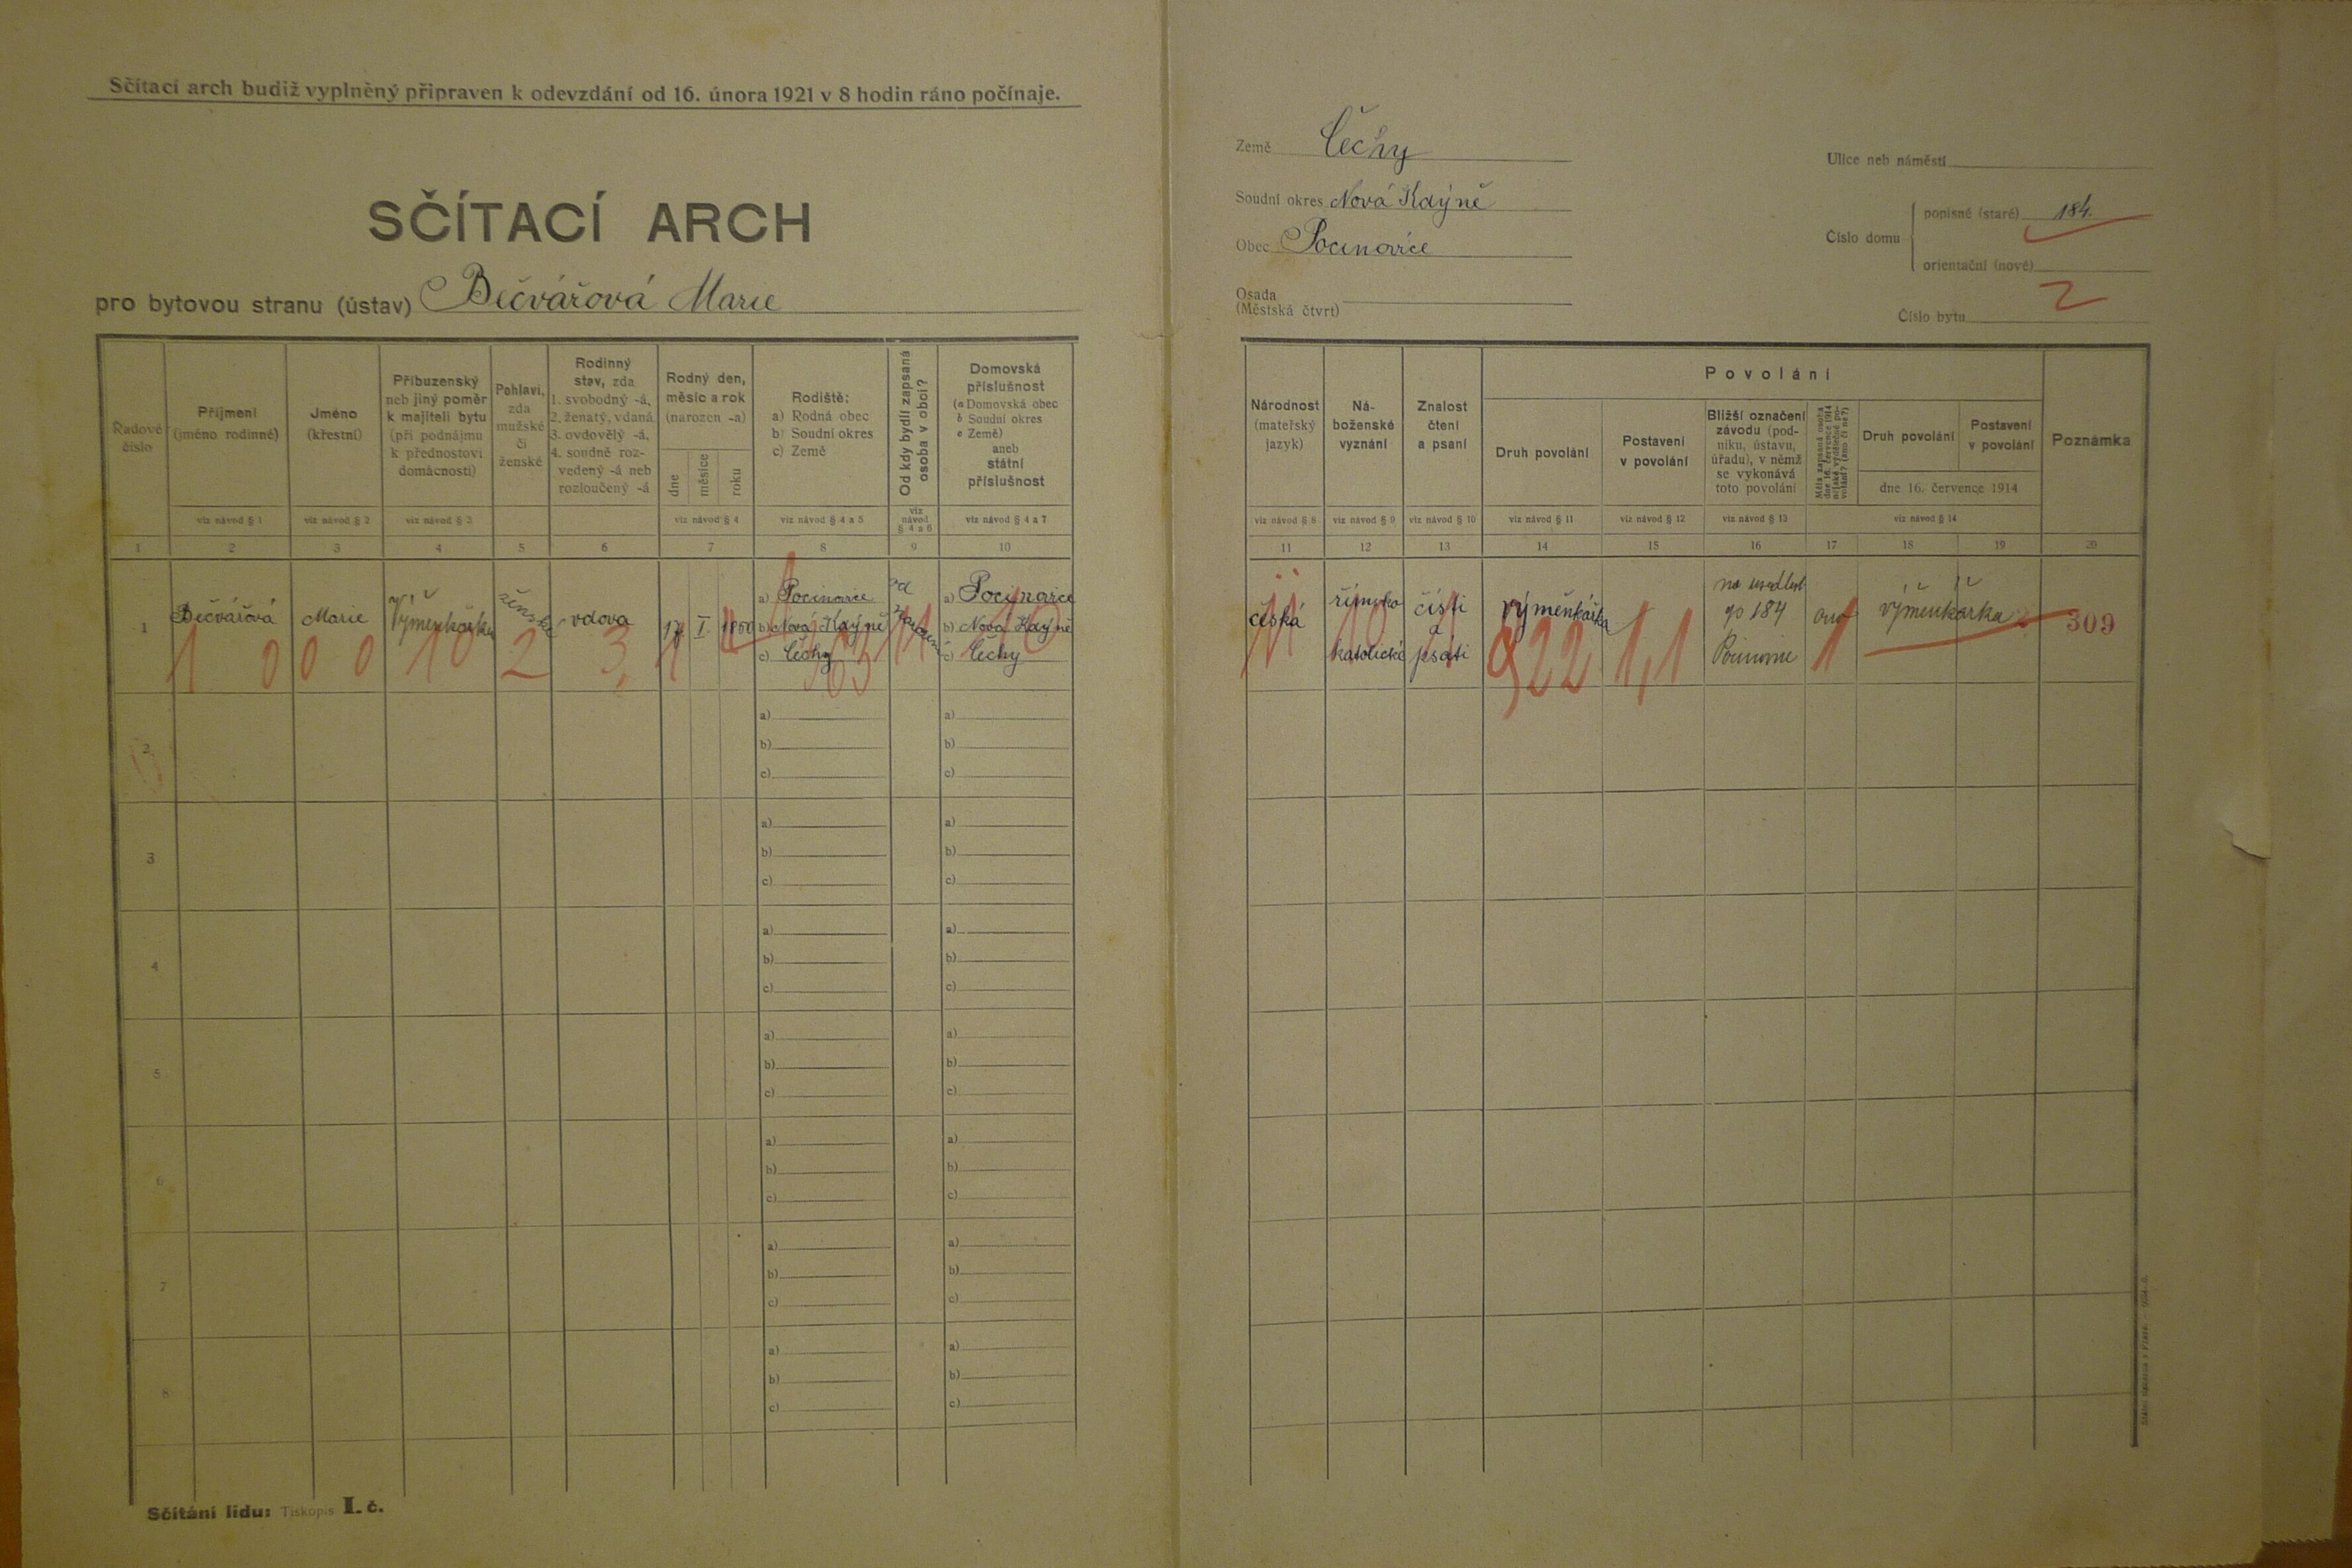 Sčítací arch budiž vyplněný připraven k odevzdání od 16. února 1921 v 8 hodin ráno počínaje.
SČÍTACÍ ARCH
pro bytovou stranu (ústav) Bečvářová Marie
Země Čechy
Soudní okres Nová Kdýně
Obec Pocinovice
Osada
(Městská čtvrt)
Ulice neb náměstí
Číslo domu
popisné (staré) 184.
orientační (nové)
2
Číslo bytu
Řadové
číslo
Příjmení
(jméno rodinné)
Jméno
(křestní)
Příbuzenský
neb jiný poměr
k majiteli bytu
(při podnájmu
k přednostovi
domácnosti)
Pohlaví,
zda
mužské
či
ženské
Rodinný
stav, zda
1. svobodný -á,
2. ženatý, vdaná
3. ovdovělý -á,
4. soudně roz-
vedený -á neb
rozloučený -á
Rodný den,
měsíc a rok
(narozen -a)
dne
měsíce
roku
Rodiště:
a) Rodná obec
b) Soudní okres
c) Země
Od kdy bydlí zapsaná
osoba v obci?
Domovská
příslušnost
(a Domovská obec
b Soudní okres
c Země)
aneb
státní
příslušnost
Národnost
(mateřský
jazyk)
Ná-
boženské
vyznání
Znalost
čtení
a psaní
Povolání
Druh povolání
Postavení
v povolání
Bližší označení
závodu (pod-
niku, ústavu,
úřadu), v němž
se vykonává
toto povolání
Měla zapsaná osoba
dne 16. července 1914
nějaké výdělečné po-
volání? (ano či ne?)
Druh povolání
Postavení
v povolání
dne 16. července 1914
Poznámka
viz návod § 1
viz návod § 2
viz návod § 3
viz návod § 4
viz návod § 4 a 5
viz
návod
§ 4 a 6
viz návod § 4 a 7
viz návod § 8
viz návod § 9
viz návod § 10
viz návod § 11
viz návod § 12
viz návod § 13
viz návod § 14
1 2 3 4 5 6 7 8 9 10 11 12 13 14 15 16 17 18 19 20
1
Bečvářová
Marie
Výměnkářka
ženské
vdova
17
I.
1860
a) Pocinovice
b) Nová Kdýně
c) Čechy
od
narození
a) Pocinovice
b) Nová Kdýně
c) Čechy
česká
římsko
katolické
čísti
a
psáti
výměnkářka
na usedlosti
čp 184
Pocinovice
ano
výměnkářka
309
1 0 0 0 10 2 3
922 1,1 1
2
a)
b)
c)
a)
b)
c)
3
a)
b)
c)
a)
b)
c)
4
a)
b)
c)
a)
b)
c)
5
a)
b)
c)
a)
b)
c)
6
a)
b)
c)
a)
b)
c)
7
a)
b)
c)
a)
b)
c)
8
a)
b)
c)
a)
b)
c)
Sčítání lidu: Tiskopis I. č.